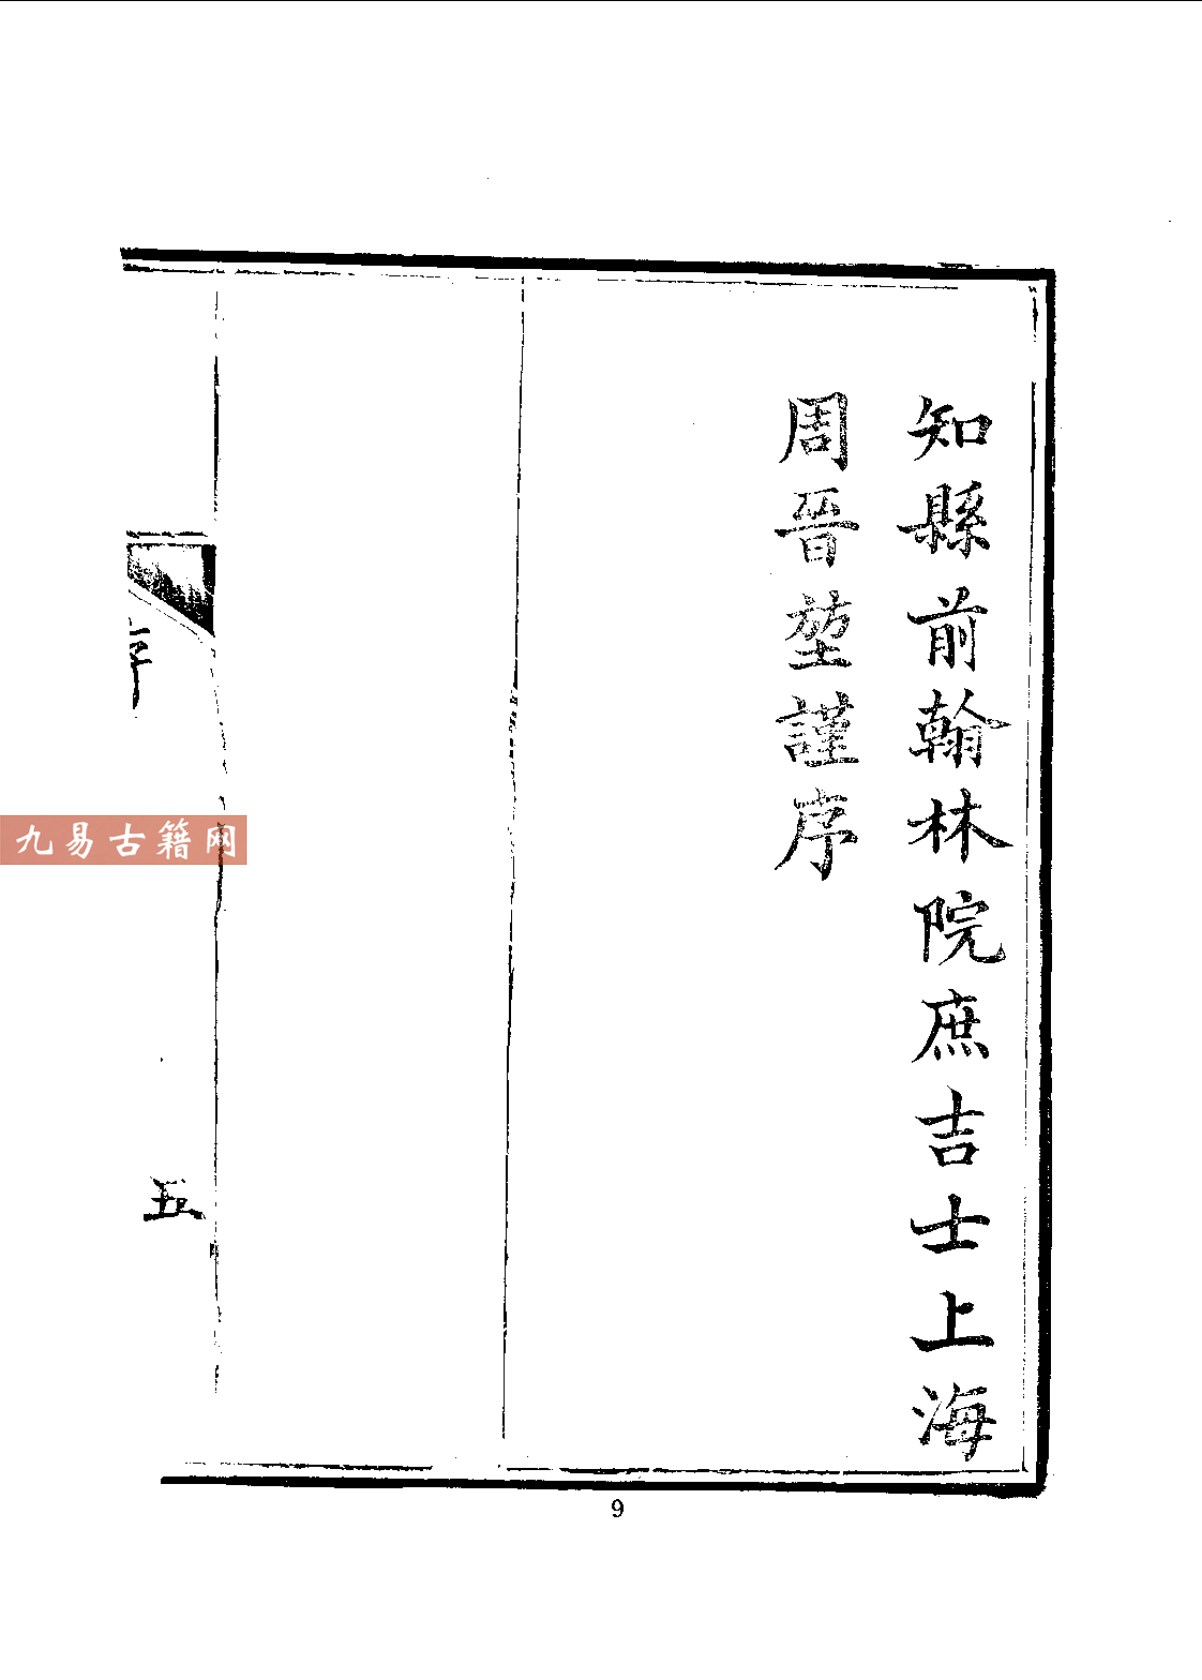 知縣前翰林院庶吉士上海
周晉堃謹序
序
五
九易古籍网
9